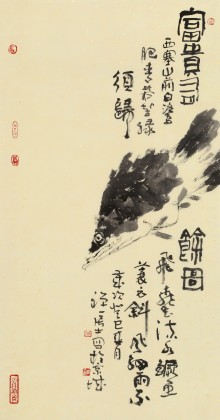 富貴有餘圖
西塞山前白鷺
飛桃花流水鱖魚
肥青箬笠綠
蓑衣斜風細雨不
須歸
歲次癸巳春月
居士
於京城